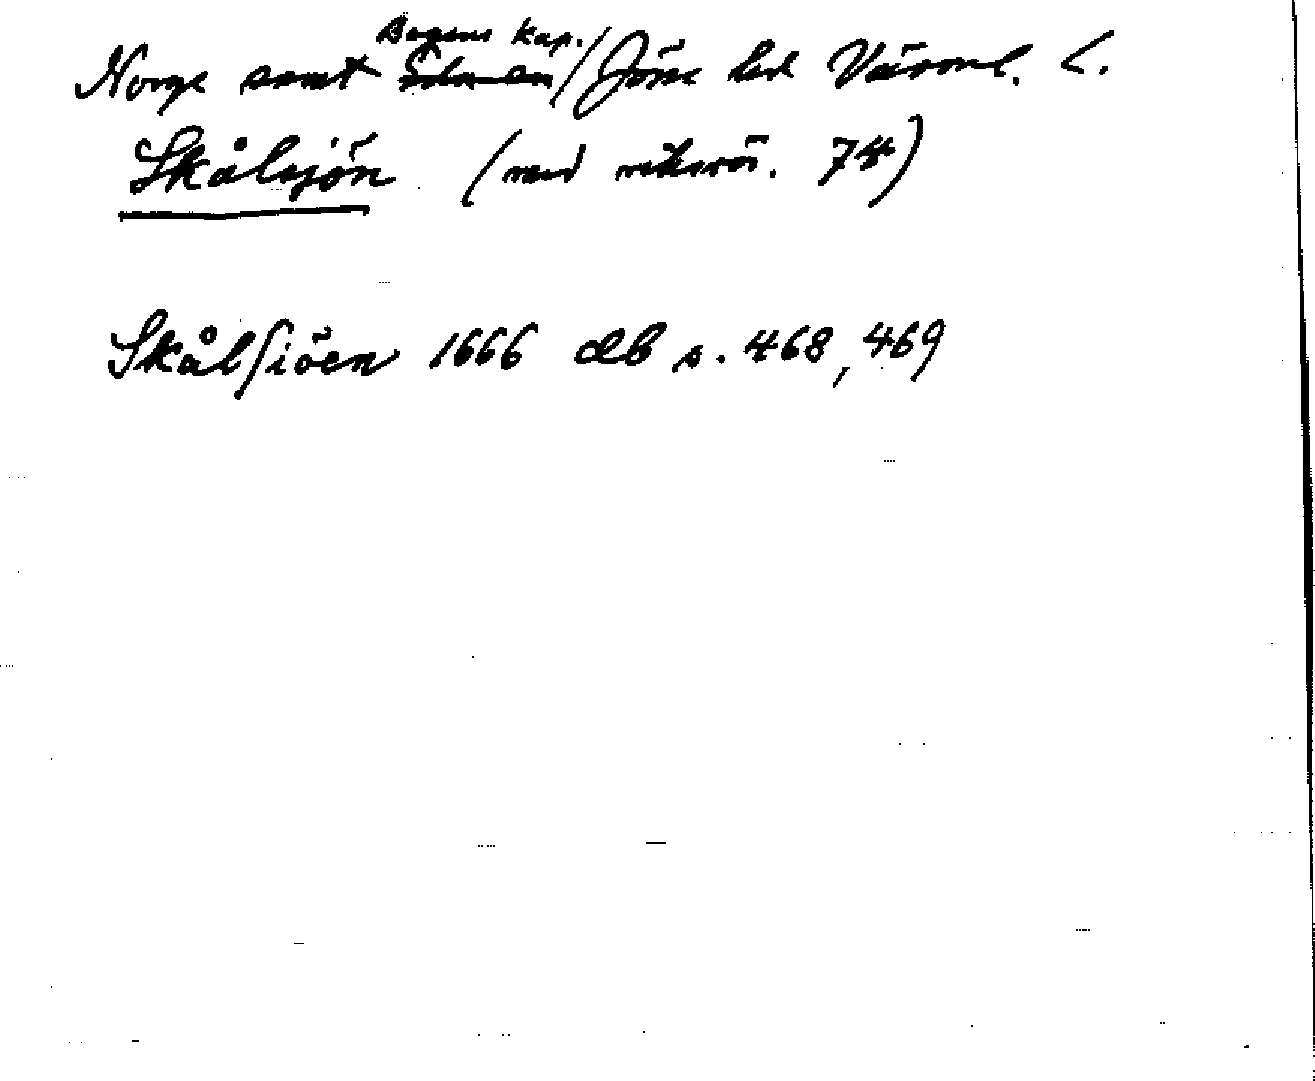 Norge samt Bogens kap./Jösse hd Värml. L.
Skålsjön (vid riksrös. 74)
Skålsiöen 1666 LB s. 468, 469